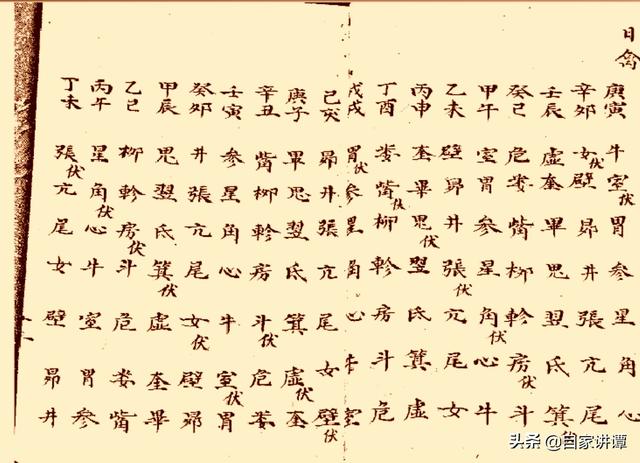 日禽
庚寅 牛 室伏 胃 参 星 角 心
辛夘 女伏 壁 昴 井 張 亢 尾
壬辰 虚 奎 畢 鬼 翌 氐 箕伏
癸巳 危 娄 觜 柳 軫 房伏 斗
甲午 室 胃 参 星 角伏 心 牛
乙未 壁 昴 井 張伏 亢 尾 女
丙申 奎 畢 鬼伏 翌 氐 箕 虚
丁酉 娄 觜伏 柳 軫 房 斗 危
戊戌 胃伏 参 星 角 心 牛 室
己亥 昴 井 張 亢 尾 女 壁伏
庚子 畢 鬼 翌 氐 箕 虚伏 奎
辛丑 觜 柳 軫 房 斗伏 危 娄
壬寅 参 星 角 心 牛 室伏 胃
癸夘 井 張 亢 尾 女伏 壁 昴
甲辰 鬼 翌 氐 箕伏 虚 奎 畢
乙巳 柳 軫 房伏 斗 危 娄 觜
丙午 星 角伏 心 牛 室 胃 参
丁未 張伏 亢 尾 女 壁 昴 井
头条 @自家讲谭